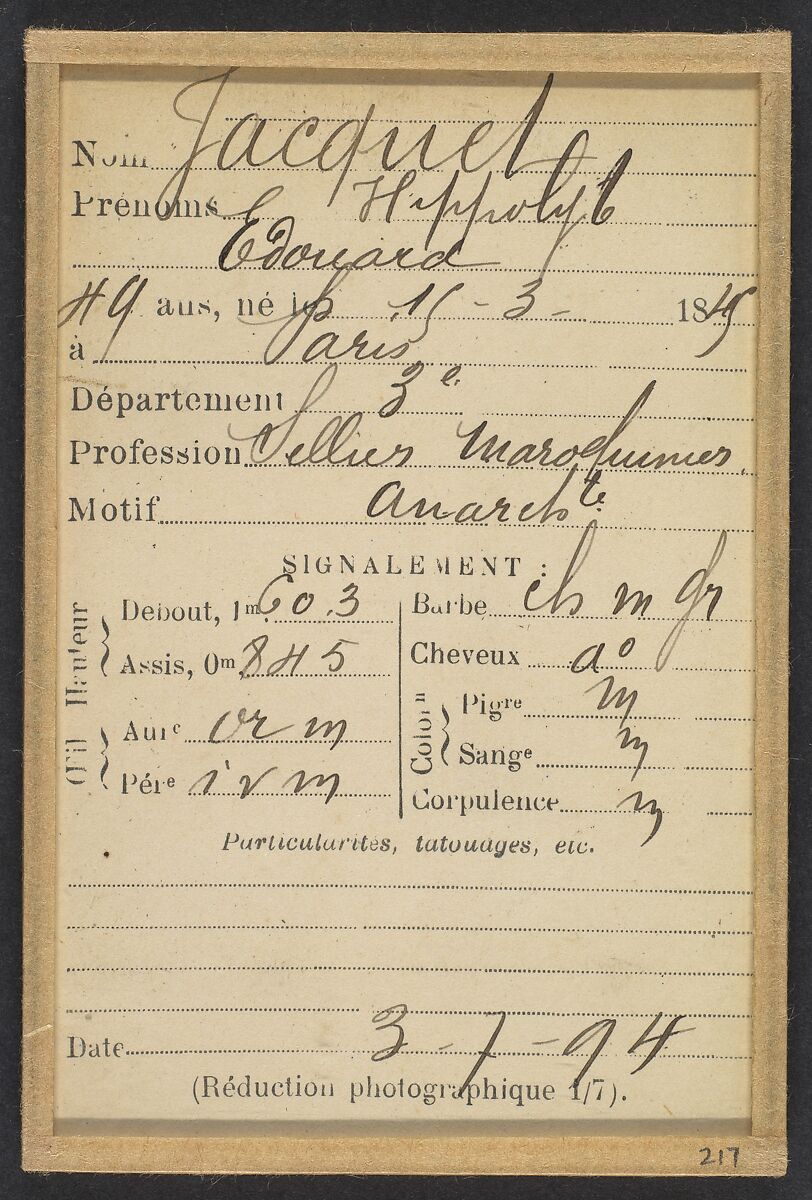 Nom Jacquet
Prénoms Hippolyte
Edouard
49 ans, né le 15-3-1845
à Paris
Département 3e.
Profession Sellier maroquinier.
Motif anarchte.
SIGNALEMENT :
Hauteur
Debout, 1m 60.3
Assis, 0m, 845
Œil
Aure or m
Pére i v m
Barbe ch m gr
Cheveux do
Colorn
Pigre m
Sange m
Corpulence m
Particularités, tatouages, etc.
Date 3-7-94
(Réduction photographique 1/7).
217